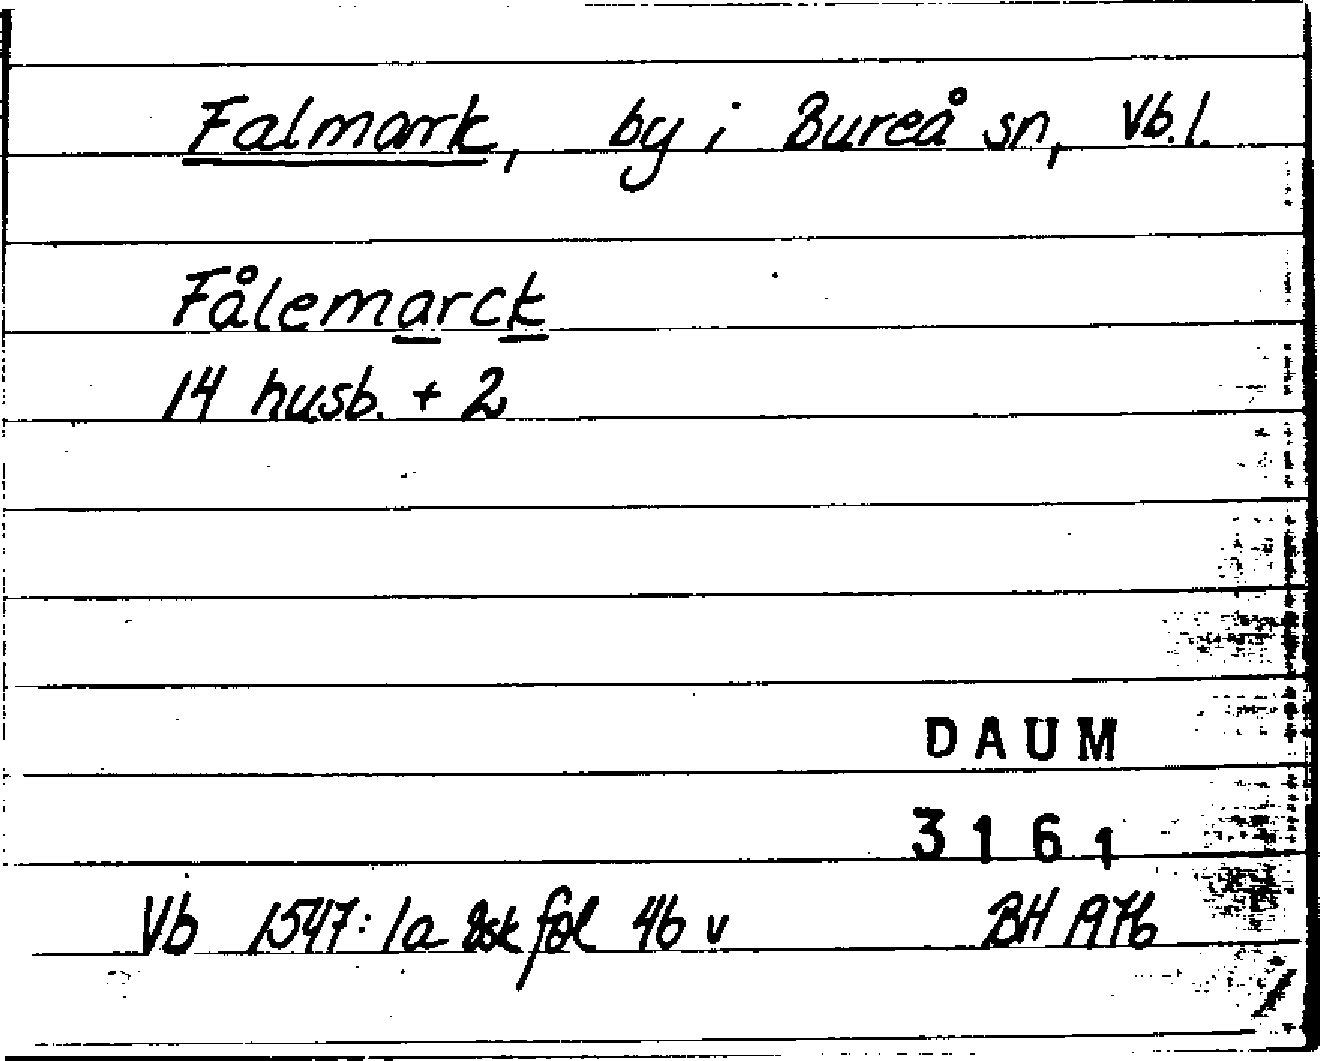 Falmark, by i Bureå sn, Vb.l.
Fålemarck
14 husb. + 2
DAUM
3161
Vb 1547:1a åsk fol 46 v BH 1976